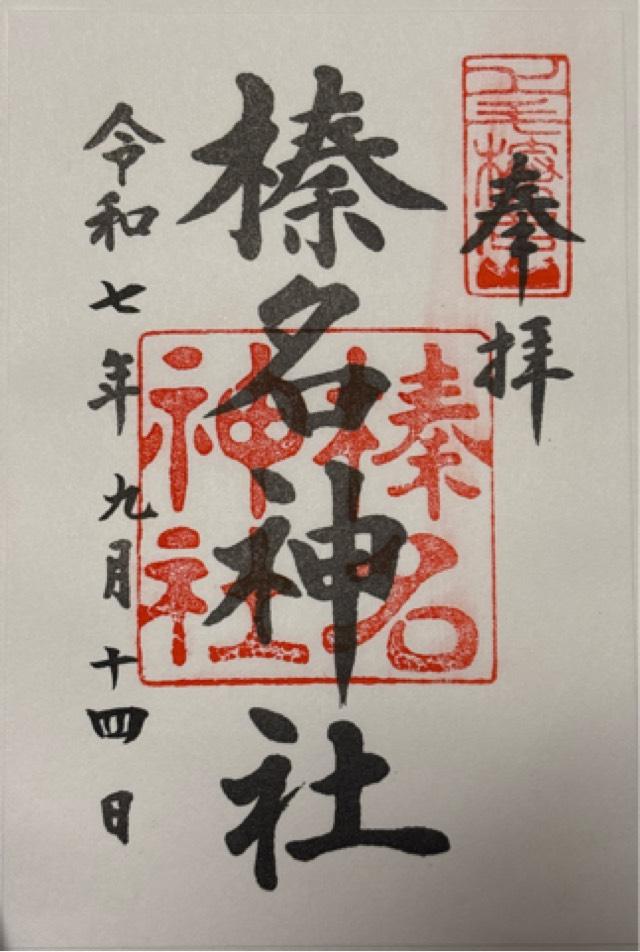 奉拝
榛名神社
榛名
神社
令和七年九月十四日